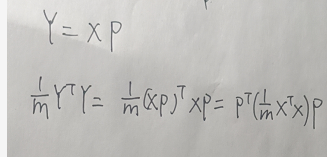 Y = X P
1/m YᵀY = 1/m (XP)ᵀ XP = Pᵀ(1/m XᵀX)P